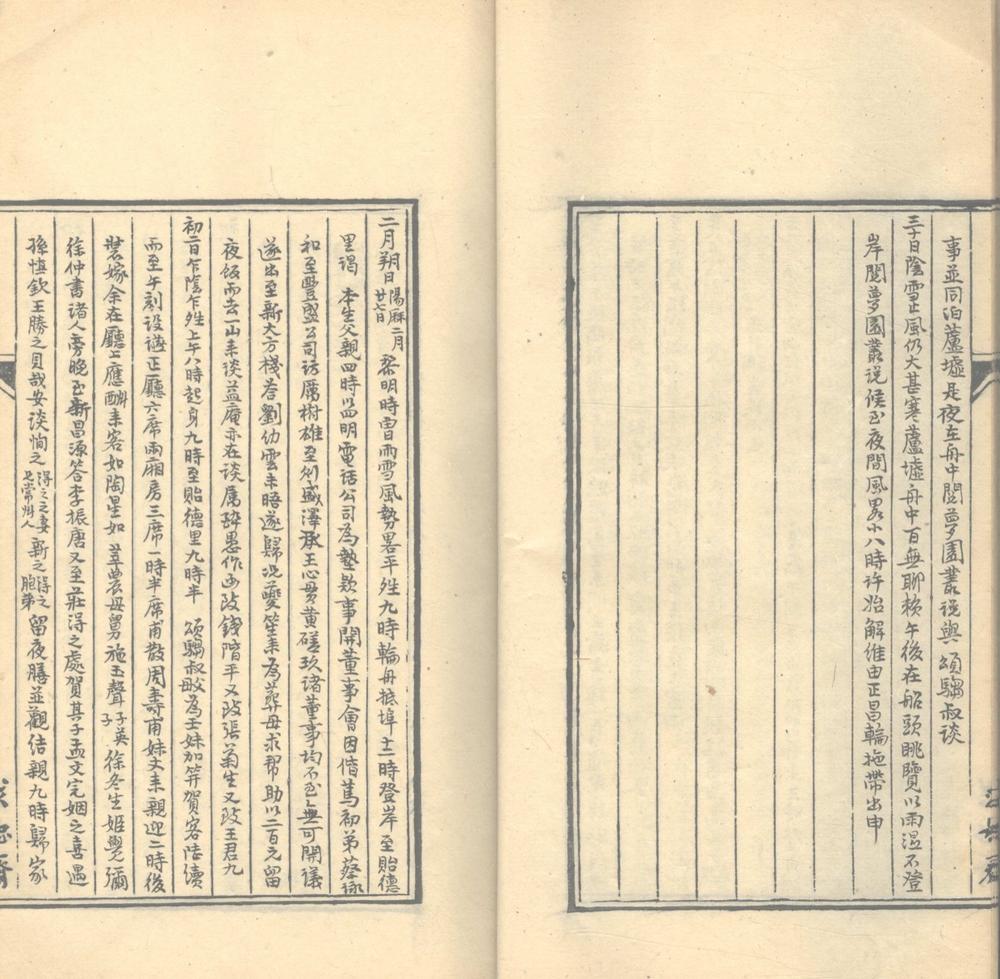 事並同泊蘆墟是夜在舟中閱夢園叢說與 頌騶叔談
三十日陰雪止風仍大甚寒蘆墟舟中百無聊賴午後在船頭眺覽以雨溼不登
岸閱夢園叢說候至夜間風畧小八時許始解維由正昌輪拖帶出申
二月朔日陽厤二月廿七日 黎明時曾雨雪風勢畧平姓九時輪舟抵埠十二時登岸至貽德
里謁 本生父親四時以四明電話公司為墊款事開董事會因偕篤初弟蔡
和至豐盛公司訪厲樹雄至列盛澤承王心貫黃磋玖諸董事均不至無可開議
遂出至新大方棧答劉幼雲未晤遂歸况夔笙來為葬母求帮助以二百元留
夜飯而去一山來談益庵亦在談屬醉愚作函致錢階平又致張菊生又致王君九
初二日乍陰乍姓上午八時起身九時至貽德里九時半 頌騶叔父母為壬妹加笄賀客陸續
而至午刻設讌正廳六席兩廂房三席一時半席甫散周壽甫妹丈來親迎二時後
裝嫁余在廳上應酬來客如陶星如 莘農母舅 施玉聲 子英 徐冬生 姬覺彌
徐仲書諸人旁晚至新昌源答李振唐又至莊得之處賀其子孟文完姻之喜遇
孫慎欽王勝之貝哉安談恂之得之之妻兄常州人新之得之胞弟留夜膳並觀結親九時歸家